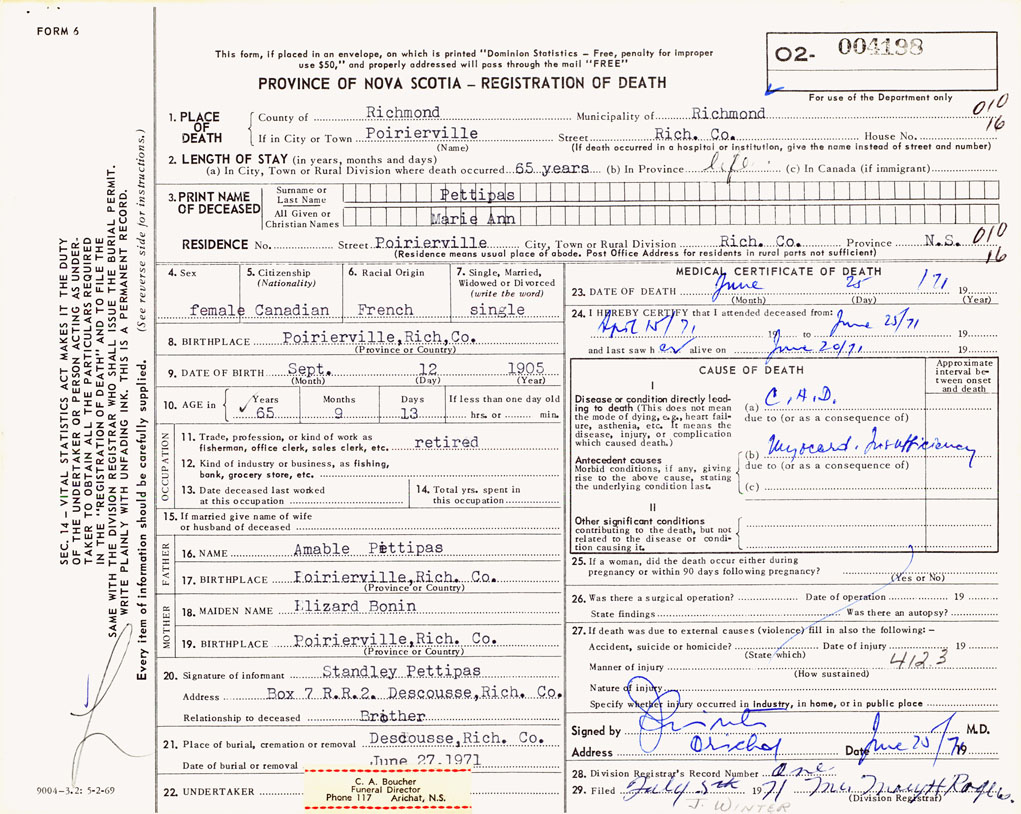 FORM 6
This form, if placed in an envelope, on which is printed "Dominion Statistics – Free, penalty for improper
use $50," and properly addressed will pass through the mail "FREE"
O2- 004198
For use of the Department only
PROVINCE OF NOVA SCOTIA – REGISTRATION OF DEATH
010
16
1. PLACE OF DEATH
County of Richmond Municipality of Richmond
If in City or Town Poirierville Street Rich. Co. House No.
(Name) (If death occurred in a hospital or institution, give the name instead of street and number)
2. LENGTH OF STAY (in years, months and days)
(a) In City, Town or Rural Division where death occurred 65 years (b) In Province life (c) In Canada (if immigrant)
3. PRINT NAME OF DECEASED
Surname or Last Name Pettipas
All Given or Christian Names Marie Ann
RESIDENCE No. Street Poirierville City, Town or Rural Division Rich. Co. Province N.S. 010
16
(Residence means usual place of abode. Post Office Address for residents in rural parts not sufficient)
4. Sex
female
5. Citizenship
(Nationality)
Canadian
6. Racial Origin
French
7. Single, Married,
Widowed or Divorced
(write the word)
single
8. BIRTHPLACE Poirierville,Rich,Co.
(Province or Country)
9. DATE OF BIRTH Sept. 12 1905
(Month) (Day) (Year)
10. AGE in Years Months Days If less than one day old
✓ 65 9 13 hrs. or min.
OCCUPATION
11. Trade, profession, or kind of work as
fisherman, office clerk, sales clerk, etc. retired
12. Kind of industry or business, as fishing,
bank, grocery store, etc.
13. Date deceased last worked
at this occupation
14. Total yrs. spent in
this occupation
15. If married give name of wife
or husband of deceased
FATHER
16. NAME Amable Pettipas
17. BIRTHPLACE Poirierville,Rich. Co.
(Province or Country)
MOTHER
18. MAIDEN NAME Elizard Bonin
19. BIRTHPLACE Poirierville,Rich. Co.
(Province or Country)
20. Signature of informant Standley Pettipas
Address Box 7 R.R.2. Descousse,Rich. Co.
Relationship to deceased Brother
21. Place of burial, cremation or removal Desdousse,Rich. Co.
Date of burial or removal June 27.1971
22. UNDERTAKER
C. A. Boucher
Funeral Director
Phone 117 Arichat, N.S.
MEDICAL CERTIFICATE OF DEATH
23. DATE OF DEATH June 25 /71 19
(Month) (Day) (Year)
24. I HEREBY CERTIFY that I attended deceased from:
April 15/71 19 to June 25/71
and last saw her alive on June 20/71 19
CAUSE OF DEATH
Approximate
interval be-
tween onset
and death
I
Disease or condition directly lead-
ing to death (This does not mean
the mode of dying, e.g., heart fail-
ure, asthenia, etc. It means the
disease, injury, or complication
which caused death.)
(a) C.H.D.
due to (or as a consequence of)
Antecedent causes
Morbid conditions, if any, giving
rise to the above cause, stating
the underlying condition last.
(b) Myocard. Insufficiency
due to (or as a consequence of)
(c)
II
Other significant conditions
contributing to the death, but not
related to the disease or condi-
tion causing it.
25. If a woman, did the death occur either during
pregnancy or within 90 days following pregnancy?
(Yes or No)
26. Was there a surgical operation? Date of operation 19
State findings Was there an autopsy?
27. If death was due to external causes (violence) fill in also the following: –
Accident, suicide or homicide? Date of injury 19
(State which) 4123
Manner of injury
(How sustained)
Nature of injury
Specify whether injury occurred in industry, in home, or in public place
Signed by M.D.
Address Arichat Date June 25/71 19
28. Division Registrar's Record Number one
29. Filed July 5th 1971
(Division Registrar)
J. WINTER
SEC. 14 – VITAL STATISTICS ACT MAKES IT THE DUTY
OF THE UNDERTAKER OR PERSON ACTING AS UNDER-
TAKER TO OBTAIN ALL THE PARTICULARS REQUIRED
IN THE "REGISTRATION OF DEATH" AND TO FILE THE
SAME WITH THE DIVISION REGISTRAR WHO SHALL ISSUE THE BURIAL PERMIT.
WRITE PLAINLY WITH UNFADING INK. THIS IS A PERMANENT RECORD.
Every item of information should be carefully supplied. (See reverse side for instructions.)
9004-3.2: 5-2-69